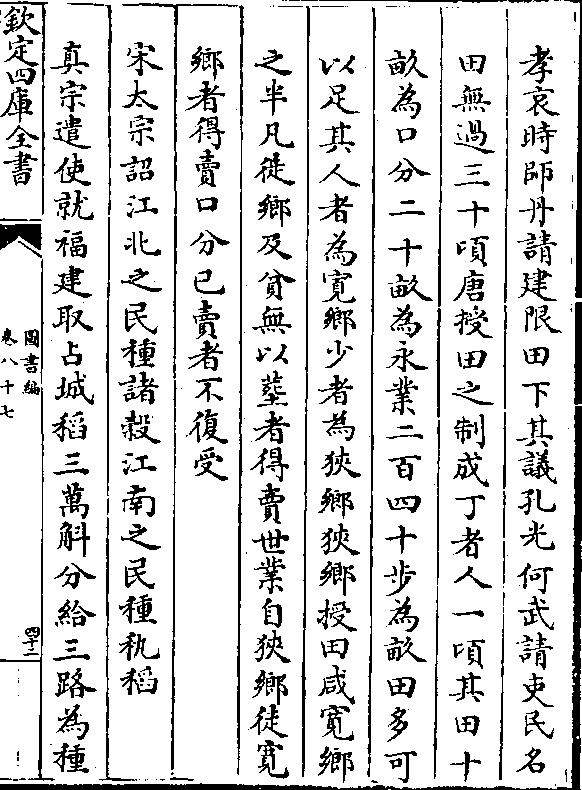 孝哀時師丹請建限田下其議孔光何武請吏民名
田無過三十頃唐授田之制成丁者人一頃其田十
畝為口分二十畝為永業二百四十步為畝田多可
以足其人者為寛鄉少者為狹鄉狹鄉授田咸寛鄉
之半凡徙鄉及貧無以塟者得賣世業自狹鄉徙寛
鄉者得賣口分已賣者不復受
宋太宗詔江北之民種諸穀江南之民種秔稻
真宗遣使就福建取占城稻三萬斛分給三路為種
欽定四庫全書
圖書編
卷八十七
四十二